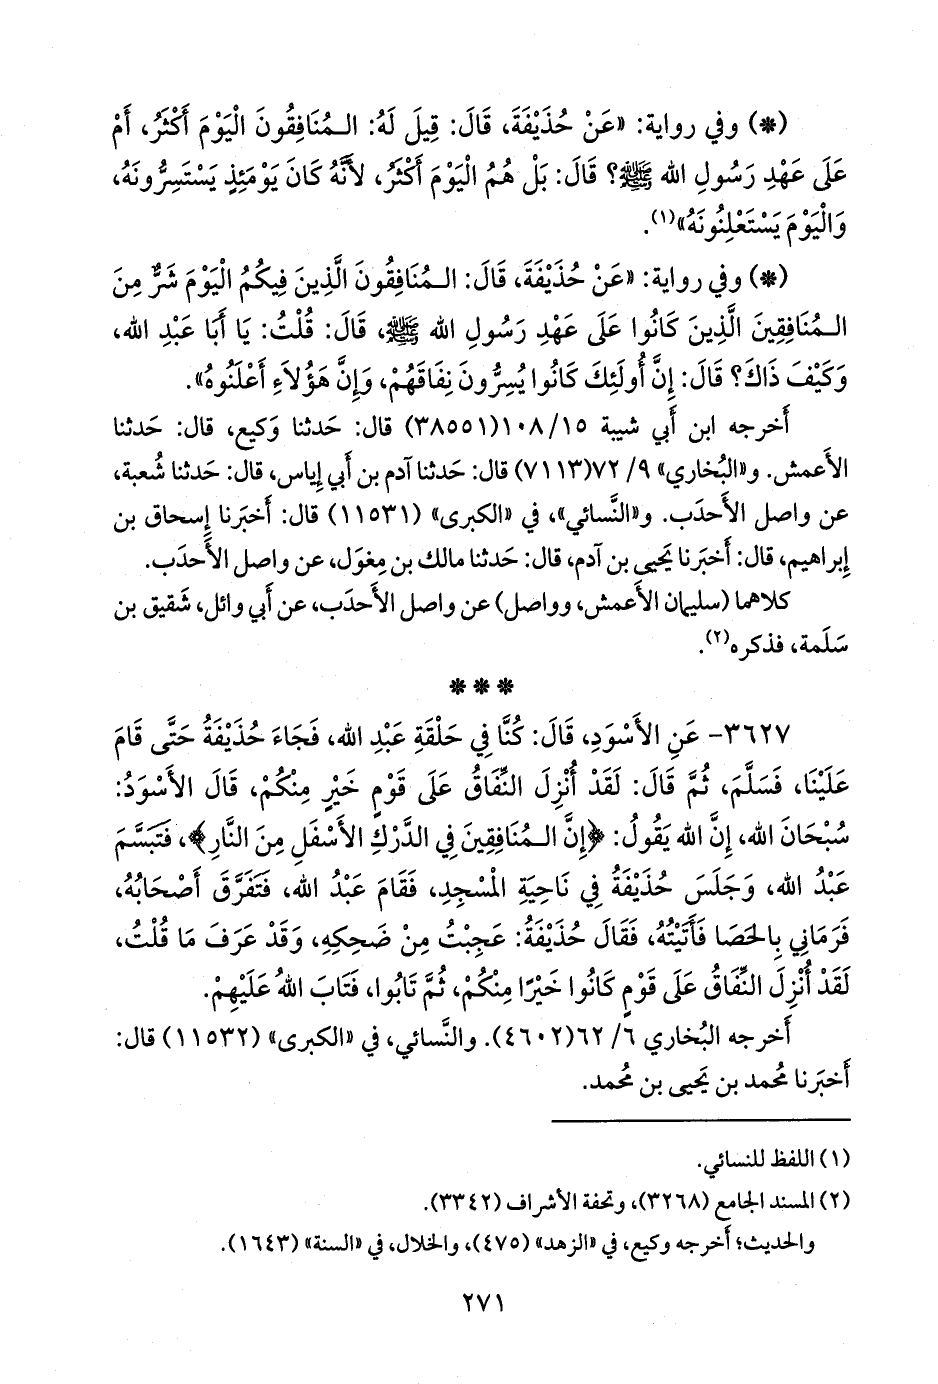 (*) وفي رواية: «عَنْ حُذَيْفَةَ، قَالَ: قِيلَ لَهُ: الـمُنَافِقُونَ الْيَوْمَ أَكْثَرُ، أَمْ
عَلَى عَهْدِ رَسُولِ الله ﷺ؟ قَالَ: بَلْ هُمُ الْيَوْمَ أَكْثَرُ، لأَنَّهُ كَانَ يَوْمَئِذٍ يَسْتَسِرُّونَهُ،
وَالْيَوْمَ يَسْتَعْلِنُونَهُ»(١).
(*) وفي رواية: «عَنْ حُذَيْفَةَ، قَالَ: الـمُنَافِقُونَ الَّذِينَ فِيكُمُ الْيَوْمَ شَرٌّ مِنَ
الـمُنَافِقِينَ الَّذِينَ كَانُوا عَلَى عَهْدِ رَسُولِ الله ﷺ، قَالَ: قُلْتُ: يَا أَبَا عَبْدِ الله،
وَكَيْفَ ذَاكَ؟ قَالَ: إِنَّ أُولَئِكَ كَانُوا يُسِرُّونَ نِفَاقَهُمْ، وَإِنَّ هَؤُلاَءِ أَعْلَنُوهُ».
أَخرجه ابن أَبي شيبة ١٥/ ١٠٨(٣٨٥٥١) قال: حَدثنا وَكيع، قال: حَدثنا
الأَعمش. و«البُخاري» ٩/ ٧٢(٧١١٣) قال: حَدثنا آدم بن أَبي إِياس، قال: حَدثنا شُعبة،
عن واصل الأَحدَب. و«النَّسائي»، في «الكبرى» (١١٥٣١) قال: أَخبَرنا إِسحاق بن
إِبراهيم، قال: أَخبَرنا يَحيى بن آدم، قال: حَدثنا مالك بن مِغوَل، عن واصل الأَحدَب.
كلاهما (سليمان الأَعمش، وواصل) عن واصل الأَحدَب، عن أَبي وائل، شَقيق بن
سَلَمة، فذكره(٢).
***
٣٦٢٧- عَنِ الأَسْوَدِ، قَالَ: كُنَّا فِي حَلْقَةِ عَبْدِ الله، فَجَاءَ حُذَيْفَةُ حَتَّى قَامَ
عَلَيْنَا، فَسَلَّمَ، ثُمَّ قَالَ: لَقَدْ أُنْزِلَ النِّفَاقُ عَلَى قَوْمٍ خَيْرٍ مِنْكُمْ، قَالَ الأَسْوَدُ:
سُبْحَانَ الله، إِنَّ الله يَقُولُ: ﴿إِنَّ الـمُنَافِقِينَ فِي الدَّرْكِ الأَسْفَلِ مِنَ النَّارِ﴾، فَتَبَسَّمَ
عَبْدُ الله، وَجَلَسَ حُذَيْفَةُ فِي نَاحِيَةِ الْمَسْجِدِ، فَقَامَ عَبْدُ الله، فَتَفَرَّقَ أَصْحَابُهُ،
فَرَمَانِي بِالحَصَا فَأَتَيْتُهُ، فَقَالَ حُذَيْفَةُ: عَجِبْتُ مِنْ ضَحِكِهِ، وَقَدْ عَرَفَ مَا قُلْتُ،
لَقَدْ أُنْزِلَ النِّفَاقُ عَلَى قَوْمٍ كَانُوا خَيْرًا مِنْكُمْ، ثُمَّ تَابُوا، فَتَابَ اللهُ عَلَيْهِمْ.
أَخرجه البُخاري ٦/ ٦٢(٤٦٠٢). والنَّسائي، في «الكبرى» (١١٥٣٢) قال:
أَخبَرنا مُحمد بن يَحيى بن مُحمد.
(١) اللفظ للنسائي.
(٢) المسند الجامع (٣٢٦٨)، وتحفة الأشراف (٣٣٤٢).
والحديث؛ أَخرجه وكيع، في «الزهد» (٤٧٥)، والخلال، في «السنة» (١٦٤٣).
٢٧١